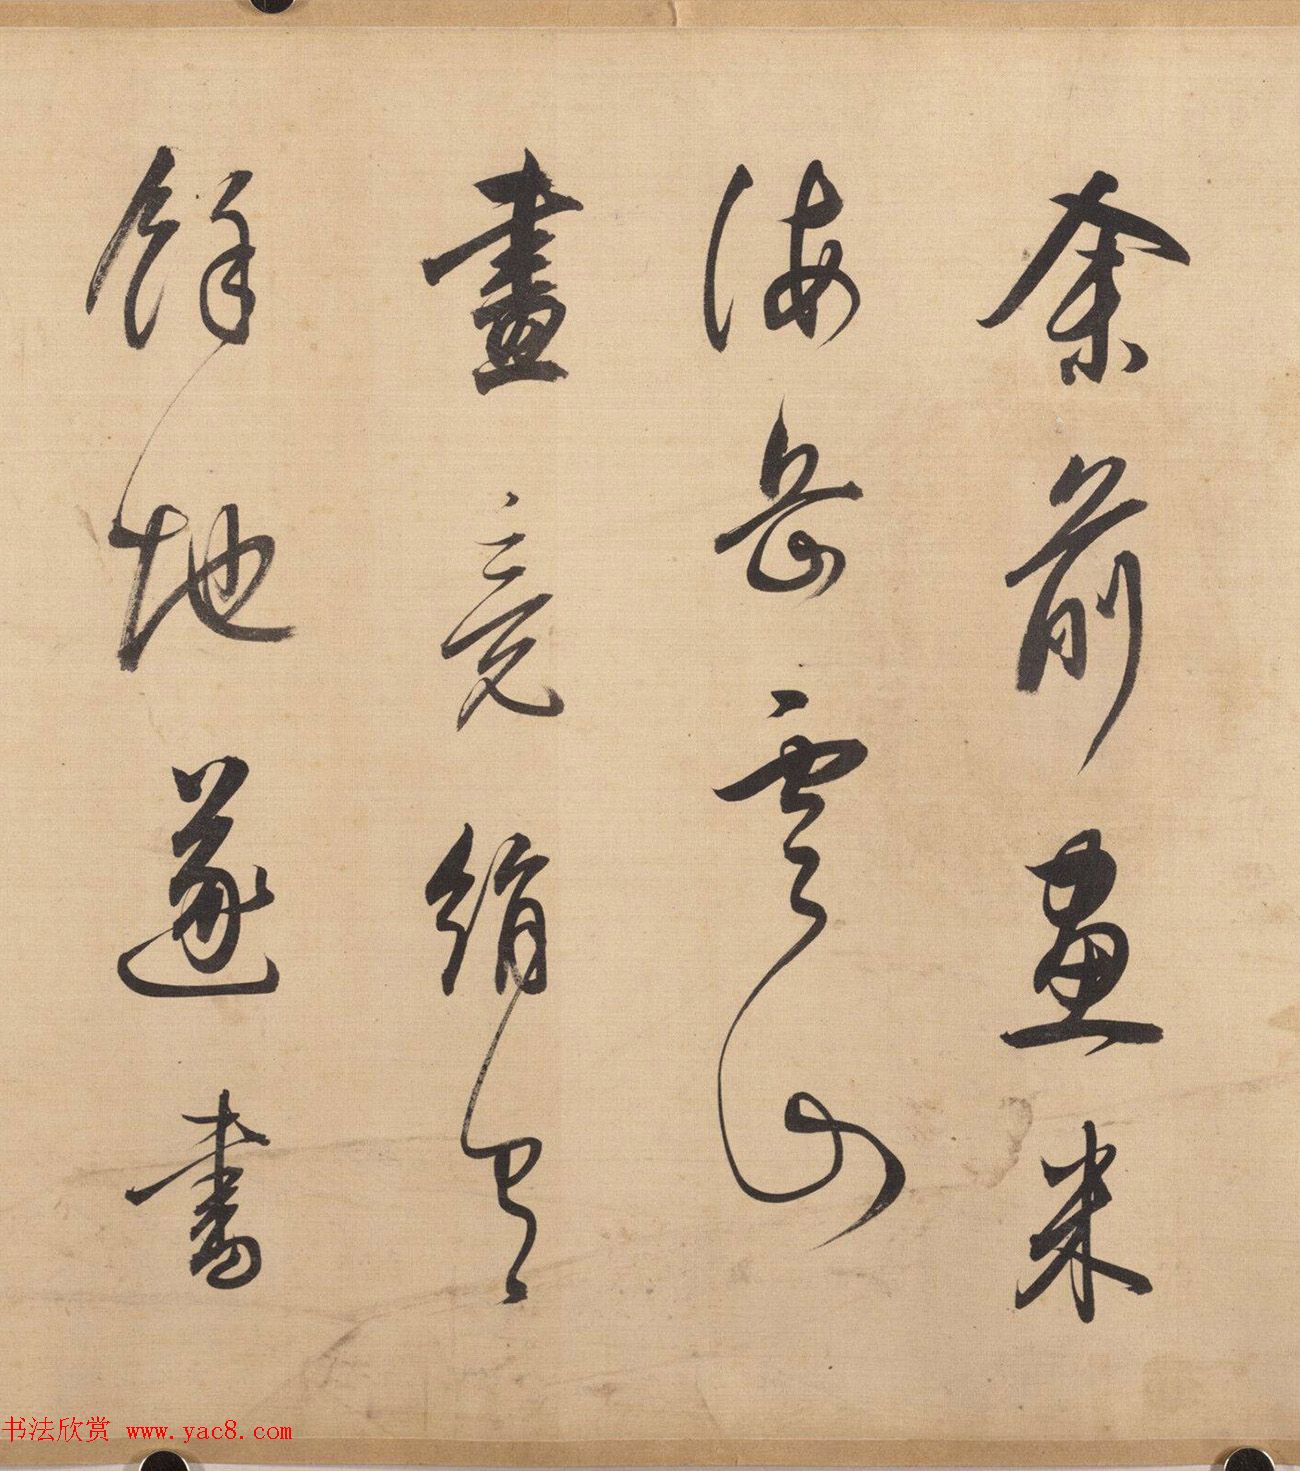 余前畫米
海岳雲山
畫竟絹有
餘地遂書
书法欣赏 www.yac8.com